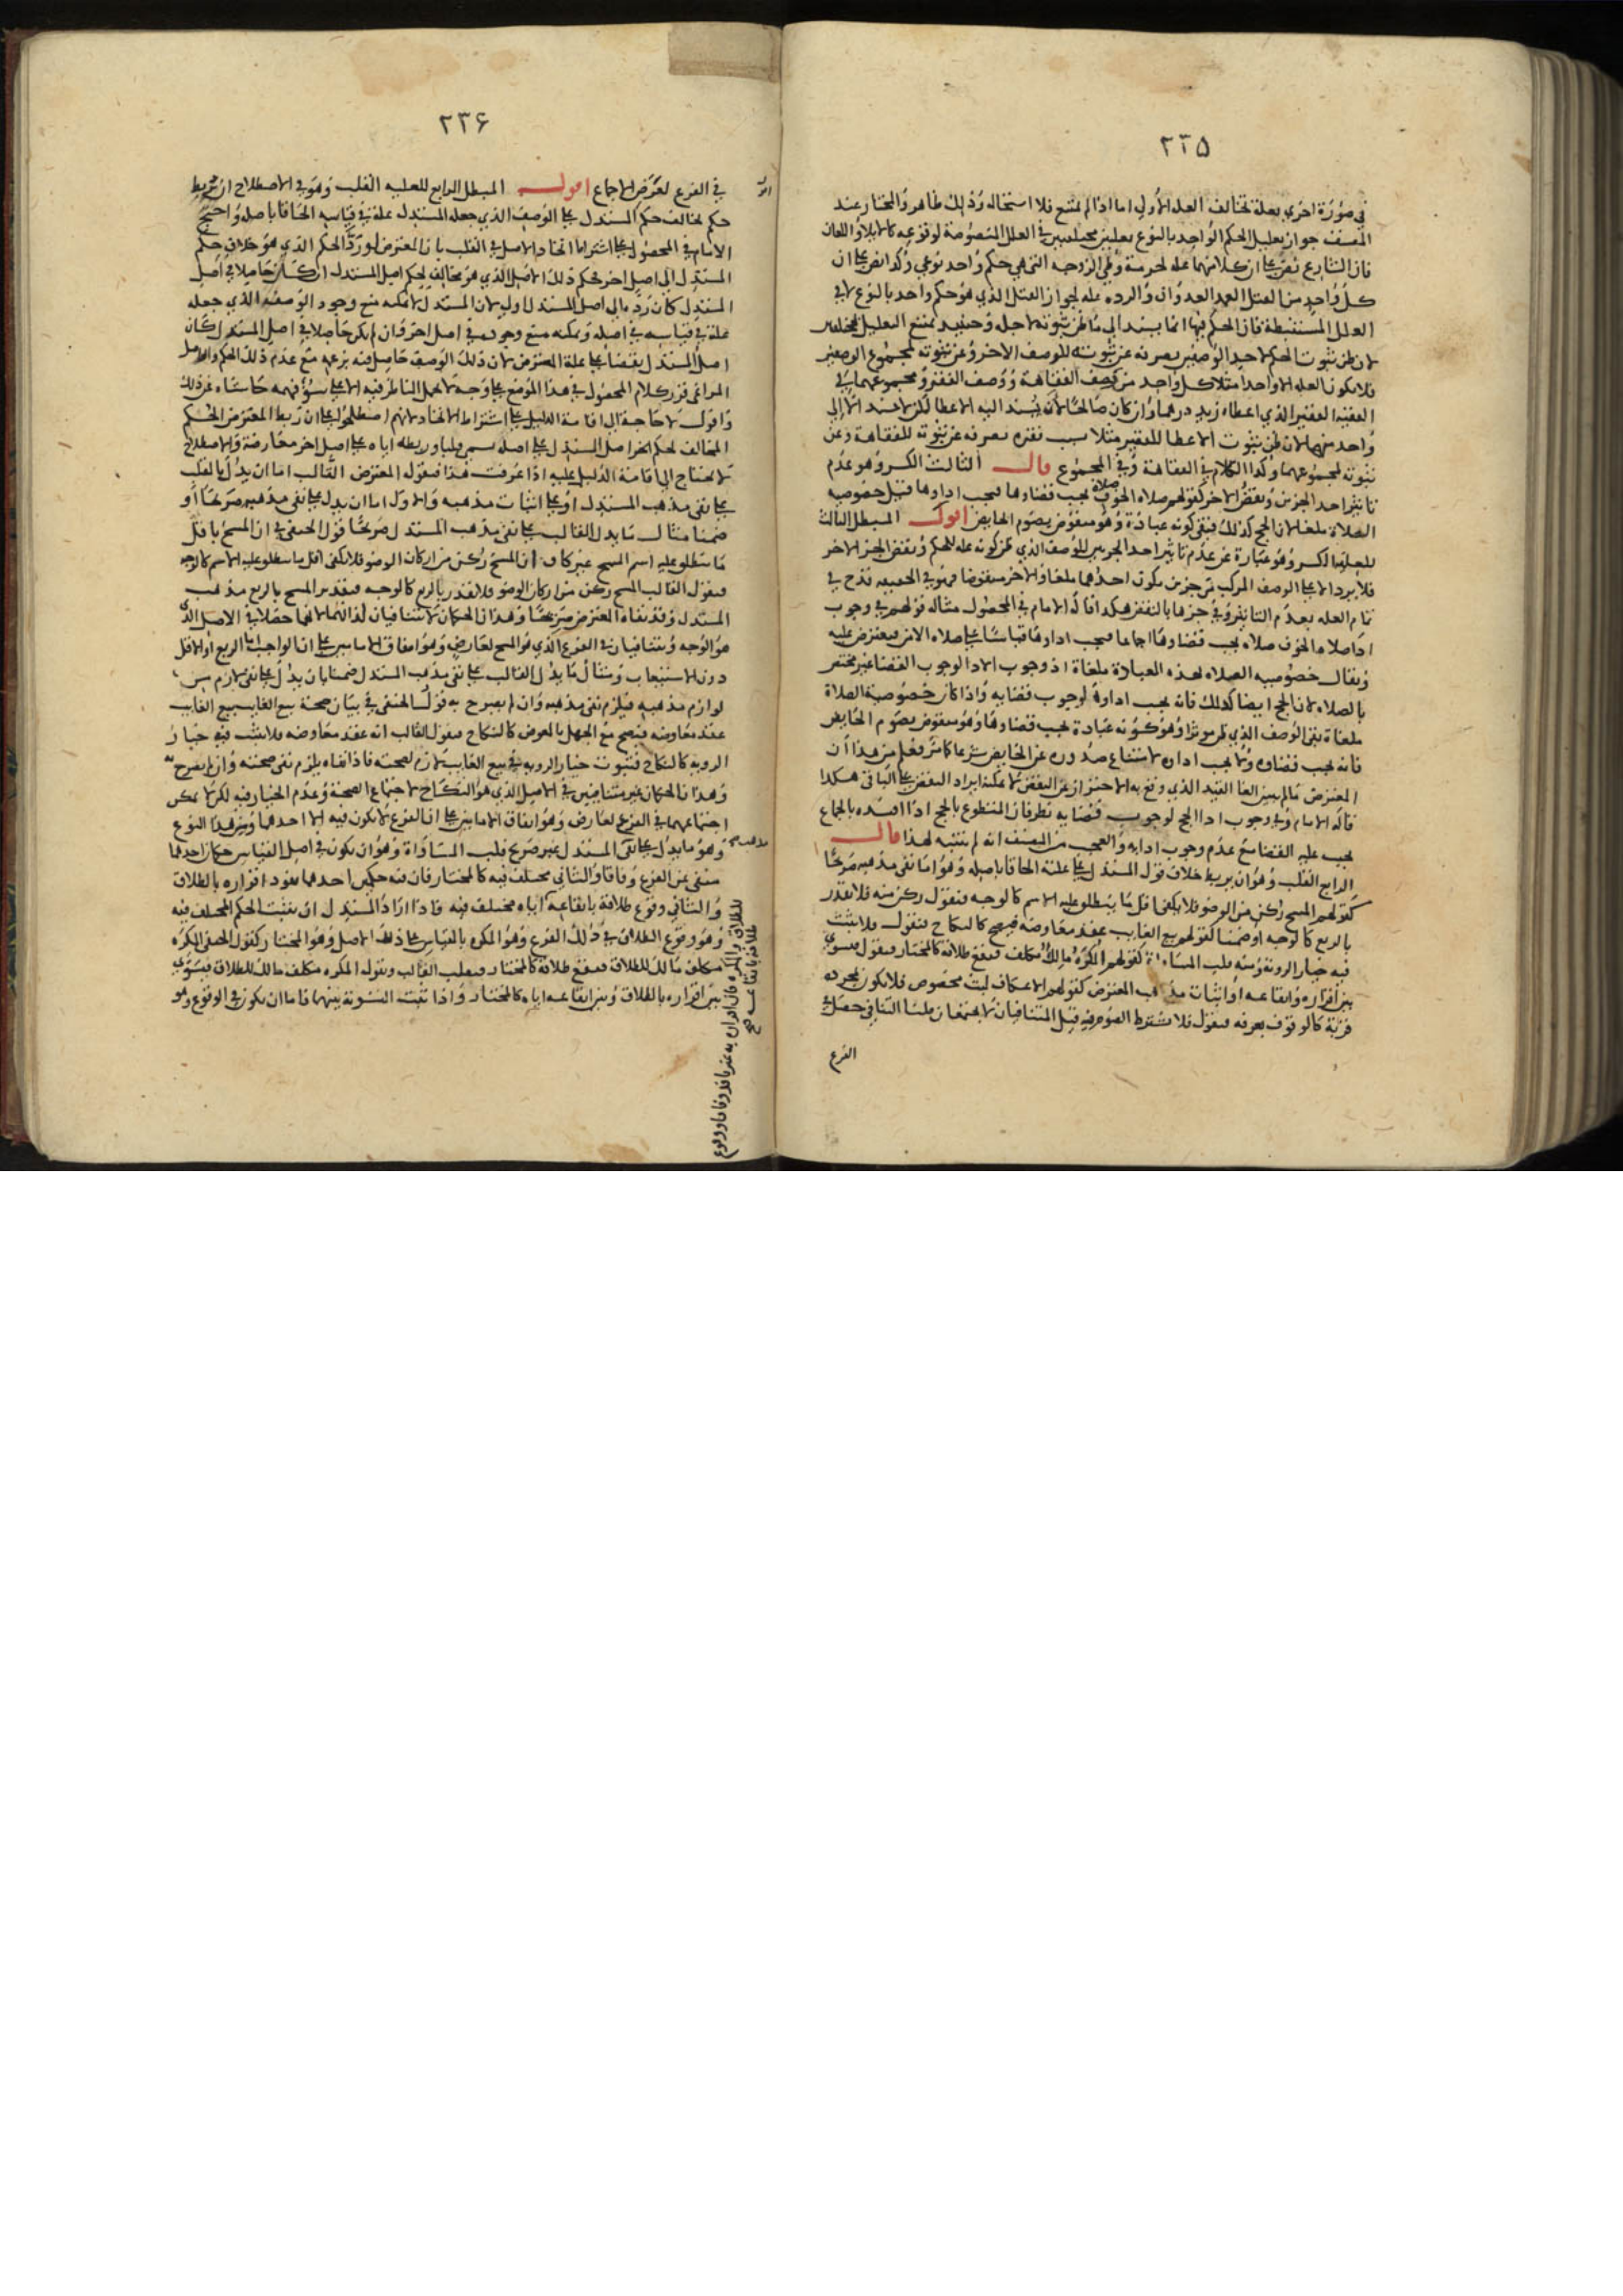 ٢٣٥
في صورة اخرى بعلة تخالف العلة الاولى اما اذا لم يمتنع فلا استحالة وذلك ظاهر والمختار عند
المصنف جواز تعليل الحكم الواحد بالنوع بعلتين مختلفتين في العلل المنصوصة لوقوعه كالايلاء واللعان
فان الشارع نص على ان كلا منهما علة لحرمة وطي الزوجة التي هي حكم واحد نوعي وكذا نص على ان
كل واحد من القتل العمد العدوان والردة علة لجواز القتل الذي هو حكم واحد بالنوع لا في
العلل المستنبطة فان الحكم فيها انما يسند الى ما ظن ثبوته لاجله وحينئذ يمتنع التعليل بمختلفين
لان ظن ثبوت الحكم لاحد الوصفين يصرفه عن ثبوته للوصف الاخر وعن ثبوته لمجموع الوصفين
فلا يكون العلة الا واحدا مثلا كل واحد من وصف الفقاهة ووصف الفقر ومجموعهما في
الفقيه الفقير الذي اعطاه زيد درهما وان كان صالحا لان يسند اليه الاعطا لكن لا يسند الا الى
واحد منها لان ظن ثبوت الاعطا للفقير مثلا بسبب فقره يصرفه عن ثبوته للفقاهة وعن
ثبوته لمجموعهما وكذا الكلام في الفقاهة وفي المجموع قال الثالث الكسر وهو عدم
تاثير احد الجزئين ونقض الاخر كقولهم صلاة الخوف صلاة يجب قضاوها فيجب اداوها قيل خصوصية
الصلاة ملغا لان الحج كذلك فبقي كونه عبادة وهو منقوض بصوم الحايض اقول المبطل الثالث
للعلية الكسر وهو عبارة عن عدم تاثير احد الجزئين للوصف الذي ظن كونه علة للحكم ونقض الجزء الاخر
فلا يرد الا على الوصف المركب من جزئين يكون احدهما ملغا والاخر منقوضا فهو في الحقيقة قدح في
تمام العلة بعدم التاثير وفي جزها بالنقض هكذا قاله الامام في المحصول مثاله قولهم في وجوب
اداء صلاة الخوف صلاة يجب قضاوها اجماعا فيجب اداوها قياسا على صلاة الامن فيعترض عليه
ويقال خصوصية الصلاة لهذه العبادة ملغاة اذ وجوب الادا لوجوب القضا غير مختص
بالصلاة لان الحج ايضا كذلك فانه يجب اداوه لوجوب قضايه واذا كان خصوصية الصلاة
ملغاة بقى الوصف الذي ظن موثرا وهو كونه عبادة يجب قضاوها وهو منقوض بصوم الحايض
فانه يجب قضاوه ولا يجب اداوه لامتناع صدوره عن الحايض شرعا كما مر فعلم من هذا ان
المعترض ما لم يبين الغا القيد الذي وقع به الاحتراز عن النقض لا يمكنه ايراد النقض على الباقي هكذا
قاله الامام وفي وجوب ادا الحج لوجوب قضايه نظر فان المتطوع بالحج اذا افسده بالجماع
يجب عليه القضا مع عدم وجوب ادايه والعجب من المصنف انه لم يتنبه لهذا قال
الرابع القلب وهو ان يربط خلاف قول المستدل على علته الحاقا باصله وهو اما نفي مذهبه صريحا
كقولهم المسح ركن من الوضو فلا يكفي اقل ما ينطلق عليه الاسم كالوجه فنقول ركن منه فلا يقدر
بالربع كالوجه او ضمنا كقولهم بيع الغايب عقد معاوضة فيصح كالنكاح فنقول فلا يثبت
فيه خيار الروية ومنه قلب المساواة كقولهم المكره مالك مكلف فيقع طلاقه كالمختار فنقول فيسوى
بين اقراره وايقاعه او اثبات مذهب المعترض كقولهم الاعتكاف لبث مخصوص فلا يكون بمجرده
قربة كالوقوف بعرفة فنقول فلا يشترط الصوم فيه قيل المتنافيان لا يجتمعان قلنا التنافي حصل في
الفرع
٢٣۶
في الفرع لعرض الاجماع اقول المبطل الرابع للعلية القلب وهو في الاصطلاح ان يربط
حكم يخالف حكم المستدل على الوصف الذي جعله المستدل علة في قياسه الحاقا باصله واحتج
الامام في المحصول على اشتراط اتحاد الاصل في القلب بان المعترض لو رد الحكم الذي هو خلاف حكم
المستدل الى اصل اخر فحكم ذلك الاصل الذي هو مخالف لحكم اصل المستدل ان كان حاصلا في اصل
المستدل كان رده الى اصل المستدل اولى لان المستدل لا يمكنه منع وجود الوصف الذي جعله
علة في قياسه في اصله ويمكنه منع وجوده في اصل اخر وان لم يكن حاصلا في اصل المستدل كان
اصل المستدل نقضا على علة المعترض لان ذلك الوصف حاصل فيه بزعمه مع عدم ذلك الحكم
المراغي قرر كلام المحصول في هذا الموضع على وجه لا يحمل الناظر فيه الا على سوء فهمه حاشاه عن ذلك
واقول لا حاجة الى اقامة الدليل على اشتراط الاتحاد لانهم اصطلحوا على ان ربط المعترض الحكم
المخالف لحكم اصل المستدل على اصله سمى قلبا وربطه اياه على اصل اخر معارضة والاصطلاح
لا يحتاج الى اقامة الدليل عليه اذا عرفت هذا فنقول المعترض القالب اما ان يدل بالقلب
على نفي مذهب المستدل او على اثبات مذهبه والاول اما ان يدل على نفي مذهبه صريحا او
ضمنا مثال ما يدل القالب على نفي مذهب المستدل صريحا قول الحنفي في ان المسح باقل
ما ينطلق عليه اسم المسح غير كاف ان المسح ركن من اركان الوضو فلا يكفي اقل ما ينطلق عليه الاسم كالوجه
فيقول القالب المسح ركن من اركان الوضو فلا يقدر بالربع كالوجه فتقدير المسح بالربع مذهب
المستدل وقد نفاه المعترض صريحا وهذان الحكمان لا يتنافيان لذاتهما لانهما حصلا في الاصل الذي
هو الوجه ويتنافيان في الفرع الذي هو المسح لعارض وهو اتفاق الامامين على ان الواجب اما الربع او الاقل
دون الاستيعاب ومثال ما يدل القالب على نفي مذهب المستدل ضمنا بان يدل على نفي لازم من
لوازم مذهبه فيلزم نفي مذهبه وان لم يصرح به قول الحنفي في بيان صحة بيع الغايب بيع الغايب
عقد معاوضة فيصح مع الجهل بالعوض كالنكاح فيقول القالب انه عقد معاوضة فلا يثبت فيه خيار
الروية كالنكاح فثبوت خيار الروية في بيع الغايب لازم لصحته فاذا نفاه يلزم نفي صحته وان لم يصرح به
وهذان الحكمان غير متنافيين في الاصل الذي هو النكاح لاجتماع الصحة وعدم الخيار فيه لكن لا يمكن
اجتماعهما في الفرع لعارض وهو اتفاق الامامين على ان الفرع لا يكون فيه الا احدهما ومن هذا النوع
وهو ما يدل على نفي المستدل غير صريح قلب المساواة وهو ان يكون في اصل القياس حكمان احدهما
منتفي عن الفرع وفاقا والثاني مختلف فيه كالمختار فان فيه حكمين احدهما نفوذ اقراره بالطلاق
والثاني وقوع طلاقه بايقاعه اياه مختلف فيه فاذا اراد المستدل ان يثبت الحكم المختلف فيه
وهو وقوع الطلاق في ذلك الفرع وهو المكره بالقياس على ذلك الاصل وهو المختار كقول الحنفي المكره
مكلف مالك للطلاق فيقع طلاقه كالمختار فيقلب القالب ويقول المكره مكلف مالك للطلاق فيسوى
بين اقراره بالطلاق وبين ايقاعه اياه كالمختار واذا ثبتت التسوية بينهما فاما ان يكون في الوقوع وهو